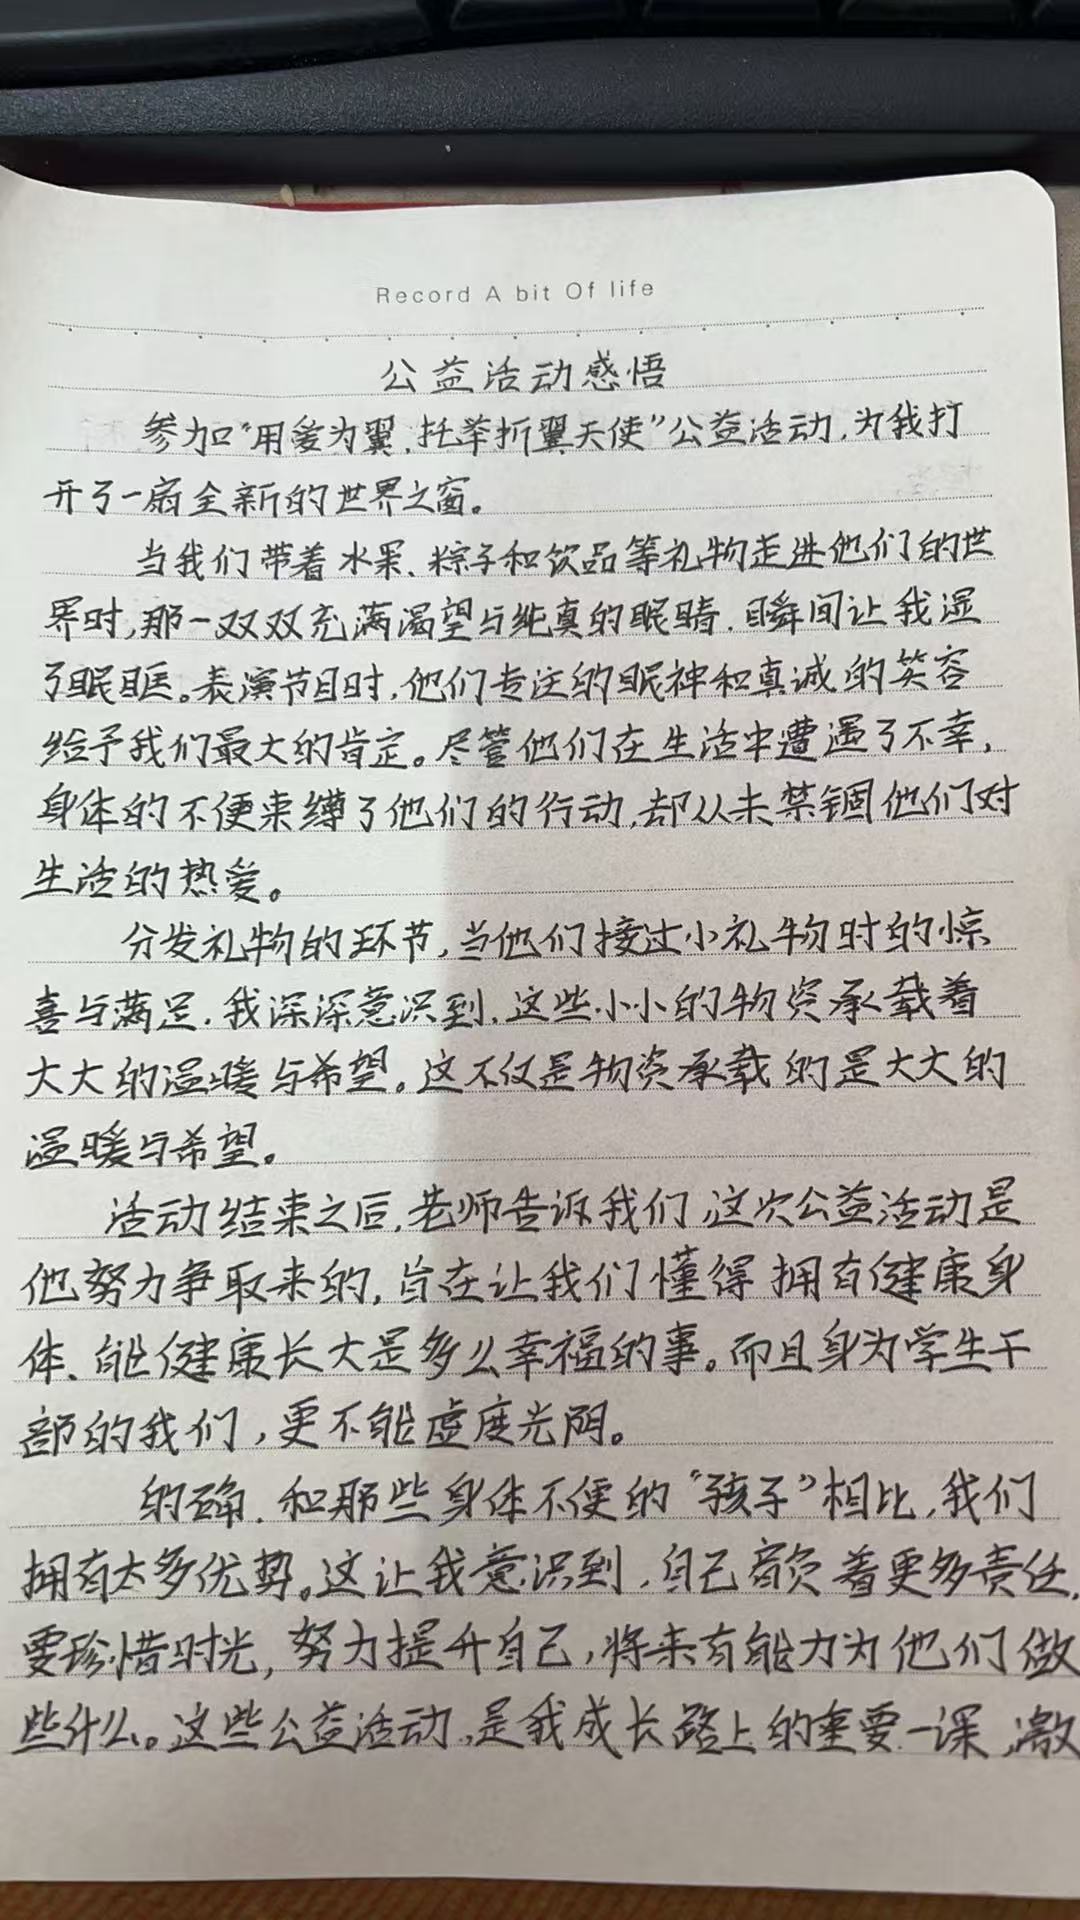 Record A bit Of life
公益活动感悟
参加“用爱为翼,托举折翼天使”公益活动,为我打
开了一扇全新的世界之窗。
当我们带着水果、粽子和饮品等礼物走进他们的世
界时,那一双双充满渴望与纯真的眼睛,瞬间让我湿
了眼眶。表演节目时,他们专注的眼神和真诚的笑容
给予我们最大的肯定。尽管他们在生活中遭遇了不幸,
身体的不便束缚了他们的行动,却从未禁锢他们对
生活的热爱。
分发礼物的环节,当他们接过小礼物时的惊
喜与满足,我深深意识到,这些小小的物资承载着
大大的温暖与希望。这不仅是物资承载的是大大的
温暖与希望。
活动结束之后,老师告诉我们,这次公益活动是
他努力争取来的,旨在让我们懂得拥有健康身
体、能健康长大是多么幸福的事。而且身为学生干
部的我们,更不能虚度光阴。
的确,和那些身体不便的“孩子”相比,我们
拥有太多优势。这让我意识到,自己肩负着更多责任,
要珍惜时光,努力提升自己,将来有能力为他们做
些什么。这些公益活动,是我成长路上的重要一课,激